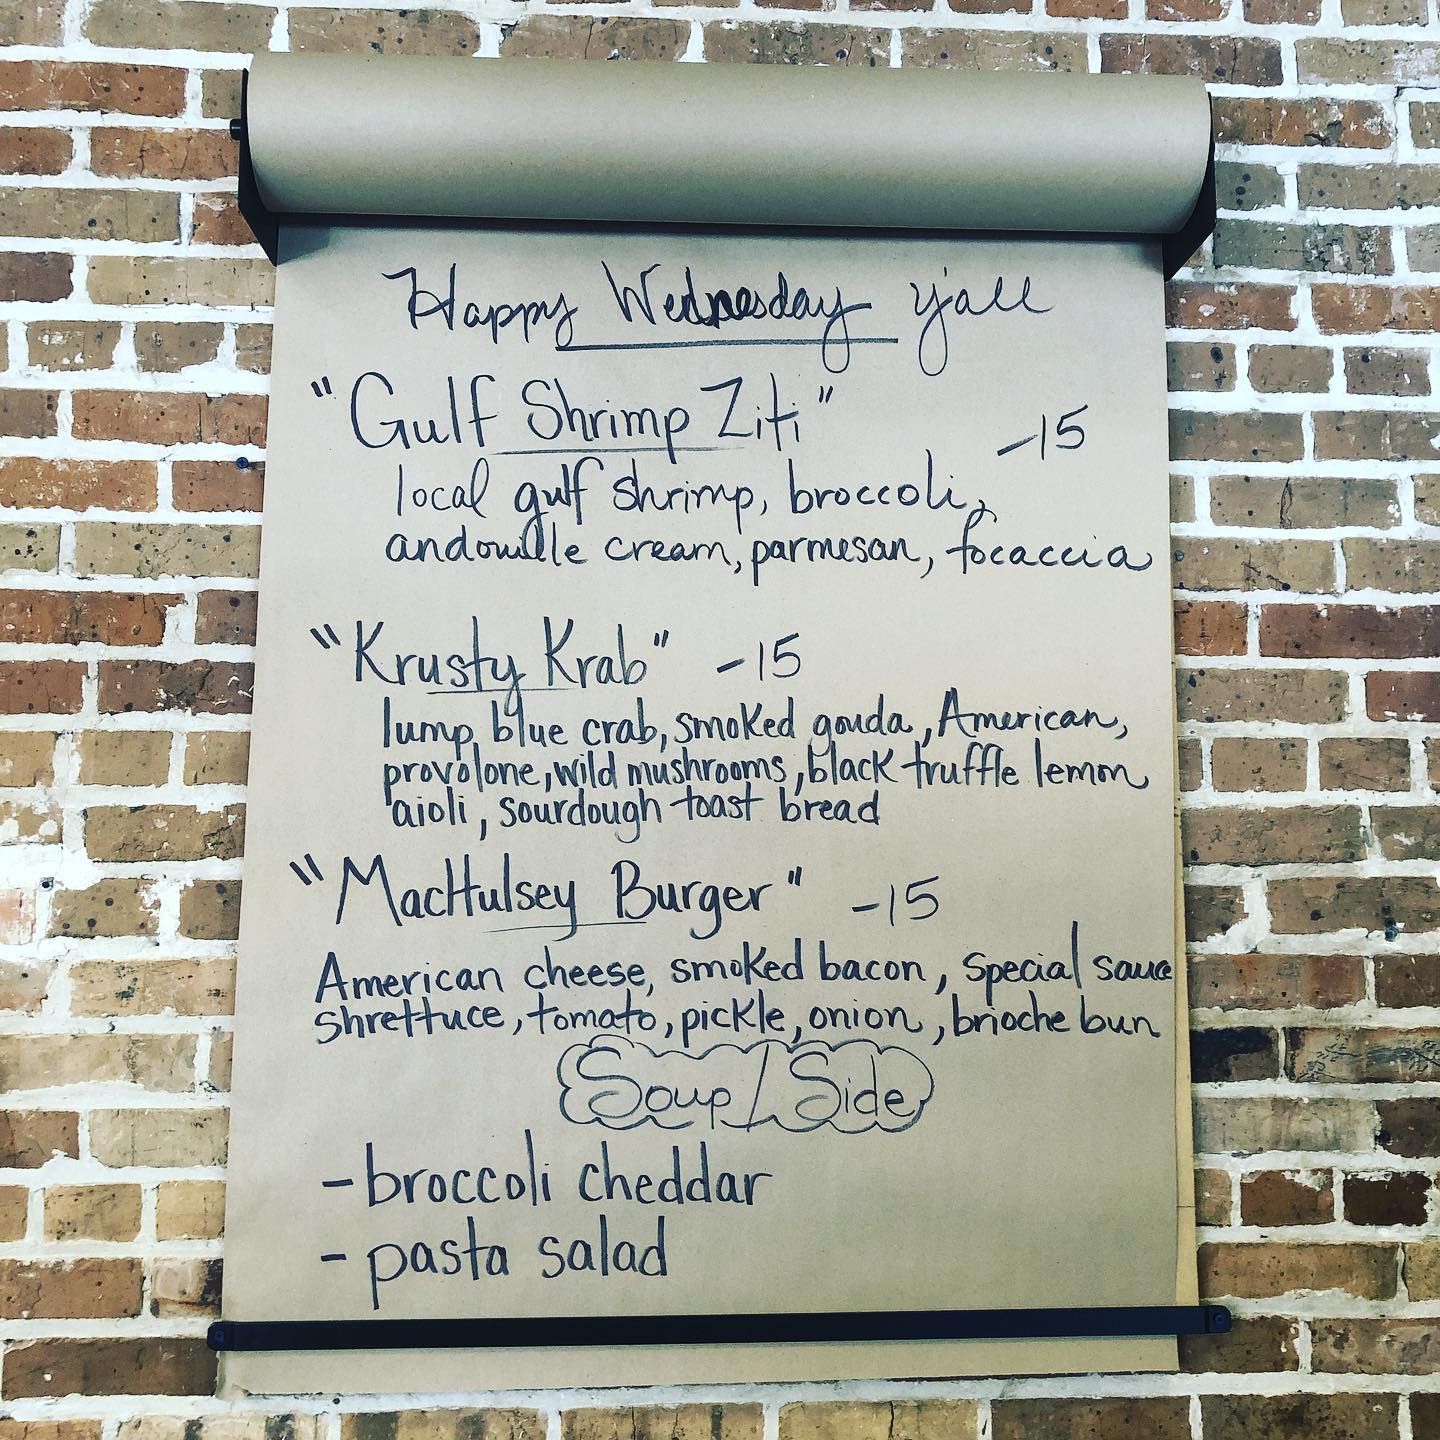 Happy Wednesday y'all
"Gulf Shrimp Ziti" -15
local gulf shrimp, broccoli,
andouille cream, parmesan, focaccia
"Krusty Krab" -15
lump blue crab, smoked gouda, American,
provolone, wild mushrooms, black truffle lemon
aioli, sourdough toast bread
"MacHulsey Burger" -15
American cheese, smoked bacon, special sauce
shrettuce, tomato, pickle, onion, brioche bun
Soup / Side
- broccoli cheddar
- pasta salad